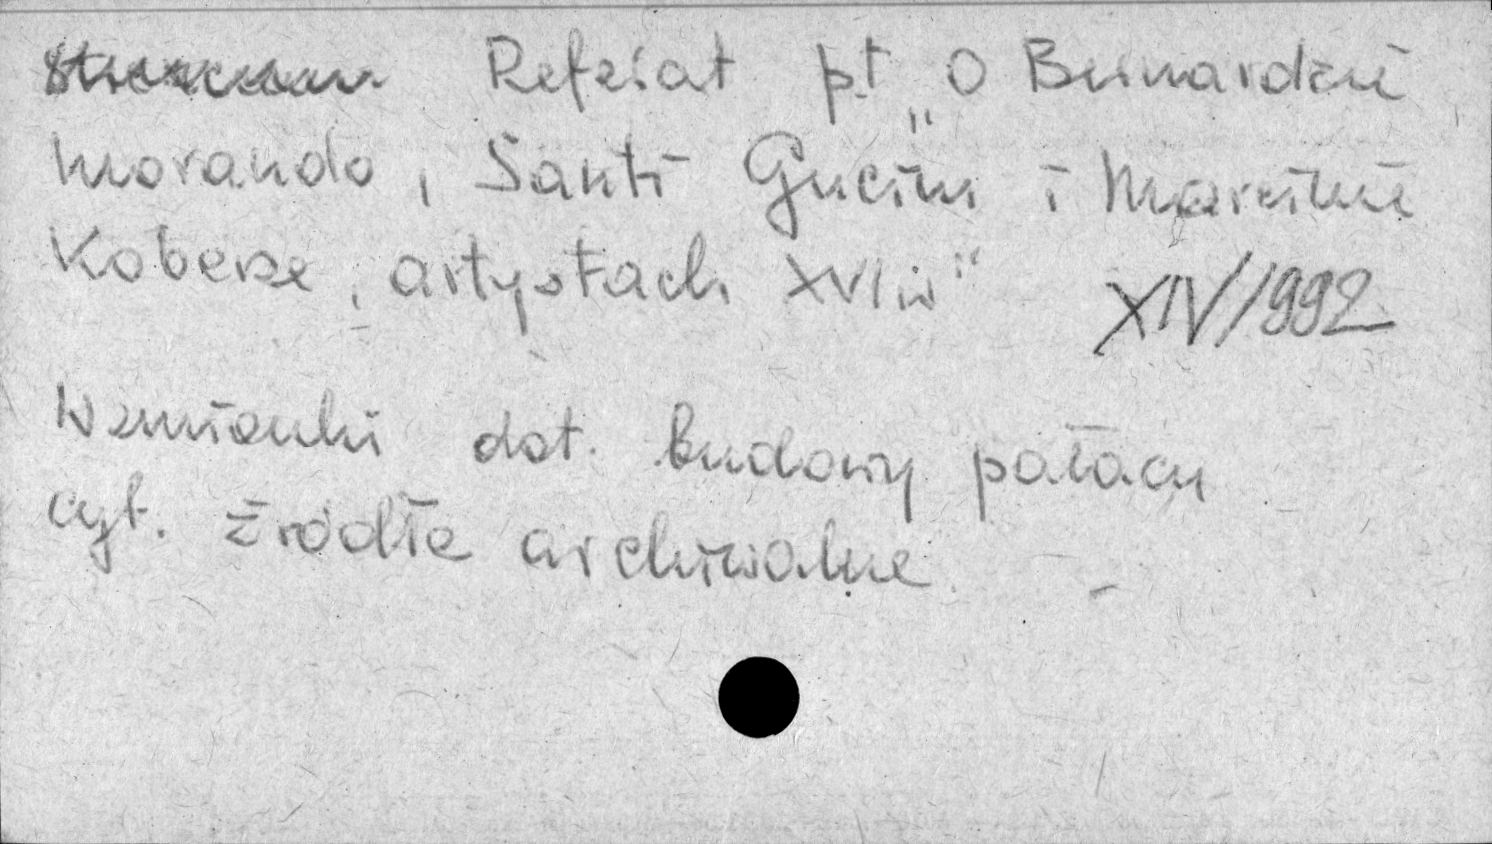 Referat pt „O Bernardzie
Morando, Santi Gucim i Marcinie
Koberze, artystach XVI w" XIV/992
Wzmianki dot. budowy pałacu
cyt. źródła archiwalne.